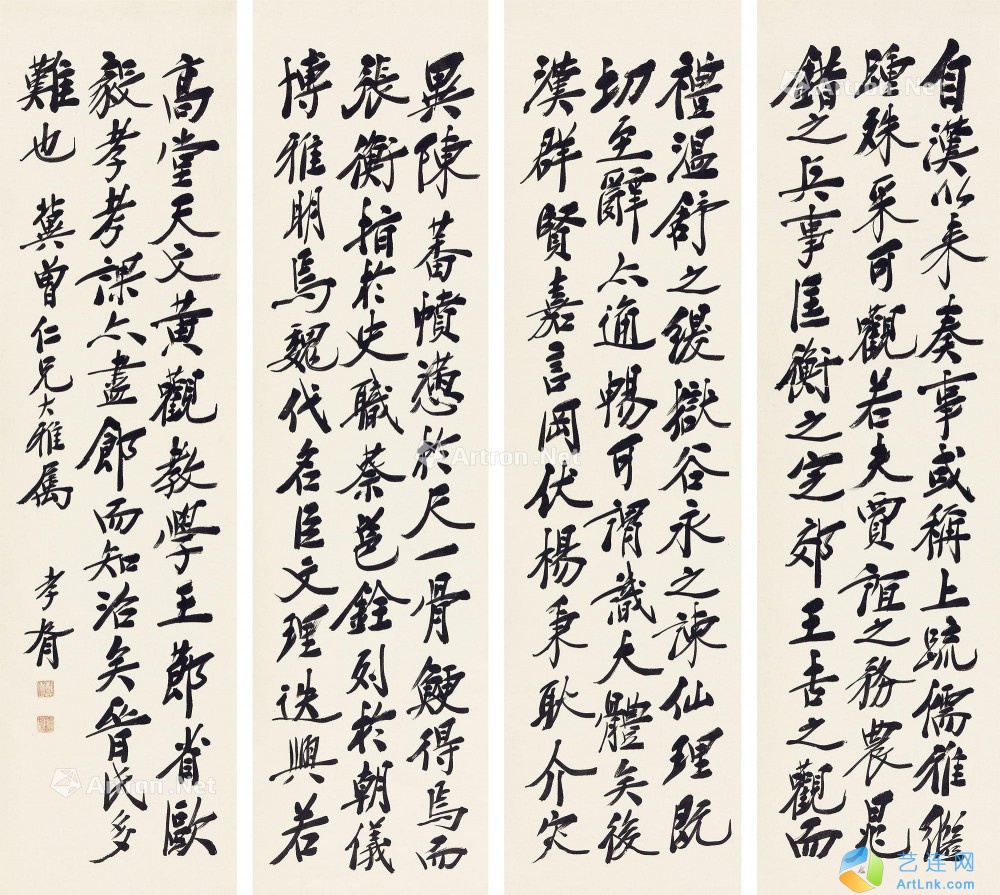 自漢以來奏事或稱上疏儒雅繼
踵殊采可觀若夫賈誼之務農晁
錯之兵事匡衡之定郊王吉之觀而
禮溫舒之緩獄谷永之諫仙理既
切至辭亦通暢可謂識大體矣後
漢群賢嘉言罔伏楊秉耿介灾
異陳蕃憤懣於尺一骨鯁得焉而
張衡指於史職蔡邕銓列於朝儀
博雅明焉魏代名臣文理迭興若
高堂天文黃觀教學王郎省歐
毅孝考課亦盡節而知治矣晉氏多
難也
冀曾仁兄大雅属
孝胥
Artron.Net
Artron.Net
Artron.Net
Artron.Net
艺连网
ArtLnk.com